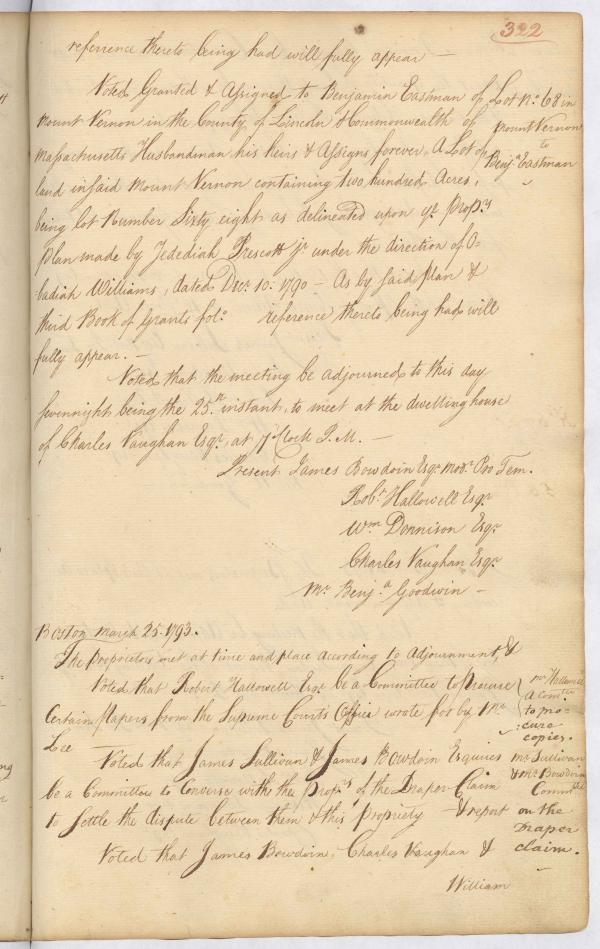 322
refference thereto being had will fully appear —
Voted Granted & Assigned to Benjamin Eastman of
Mount Vernon in the County of Lincoln & Commonwealth of
Massachusetts Husbandman his heirs & Assigns forever, A Lot of
land in said Mount Vernon containing two hundred Acres,
being lot Number Sixty eight as delineated upon ye Prop.rs
plan made by Jedediah Prescott jr. under the direction of O-
badiah Williams, dated Dec.r 10: 1790 — As by said plan &
third Book of Grants fol.o reference thereto being had will
fully appear. —
Lot No. 68 in
Mount Vernon
to
Benj.a Eastman
Voted that the meeting be adjourned to this day
sevennight being the 25.th instant, to meet at the dwelling house
of Charles Vaughan Esqr. at 7 Clock P.M. —
Present James Bowdoin Esqr. Mod.r Pro Tem.
Rob.t Hallowell Esqr.
Wm. Donnison Esqr.
Charles Vaughan Esqr.
Mr. Benj.a Goodwin —
Boston March 25. 1793.
The Proprietors met at time and place according to Adjournment, &
Voted that Robert Hallowell Esqr. be a Committee to procure
Certain Papers from the Supreme Courts Office wrote for by Mr.
Lee
Mr. Hallowell
a Com.tee
to pro-
cure
copies.
Voted that James Sullivan & James Bowdoin Esquires
be a Committee to Converse with the Prop.rs of the Draper Claim
to Settle the dispute between them & this Propriety & report
Mr. Sullivan
& Mr. Bowdoin
Comm.tee
on the
Draper
claim.
Voted that James Bowdoin, Charles Vaughan &
William